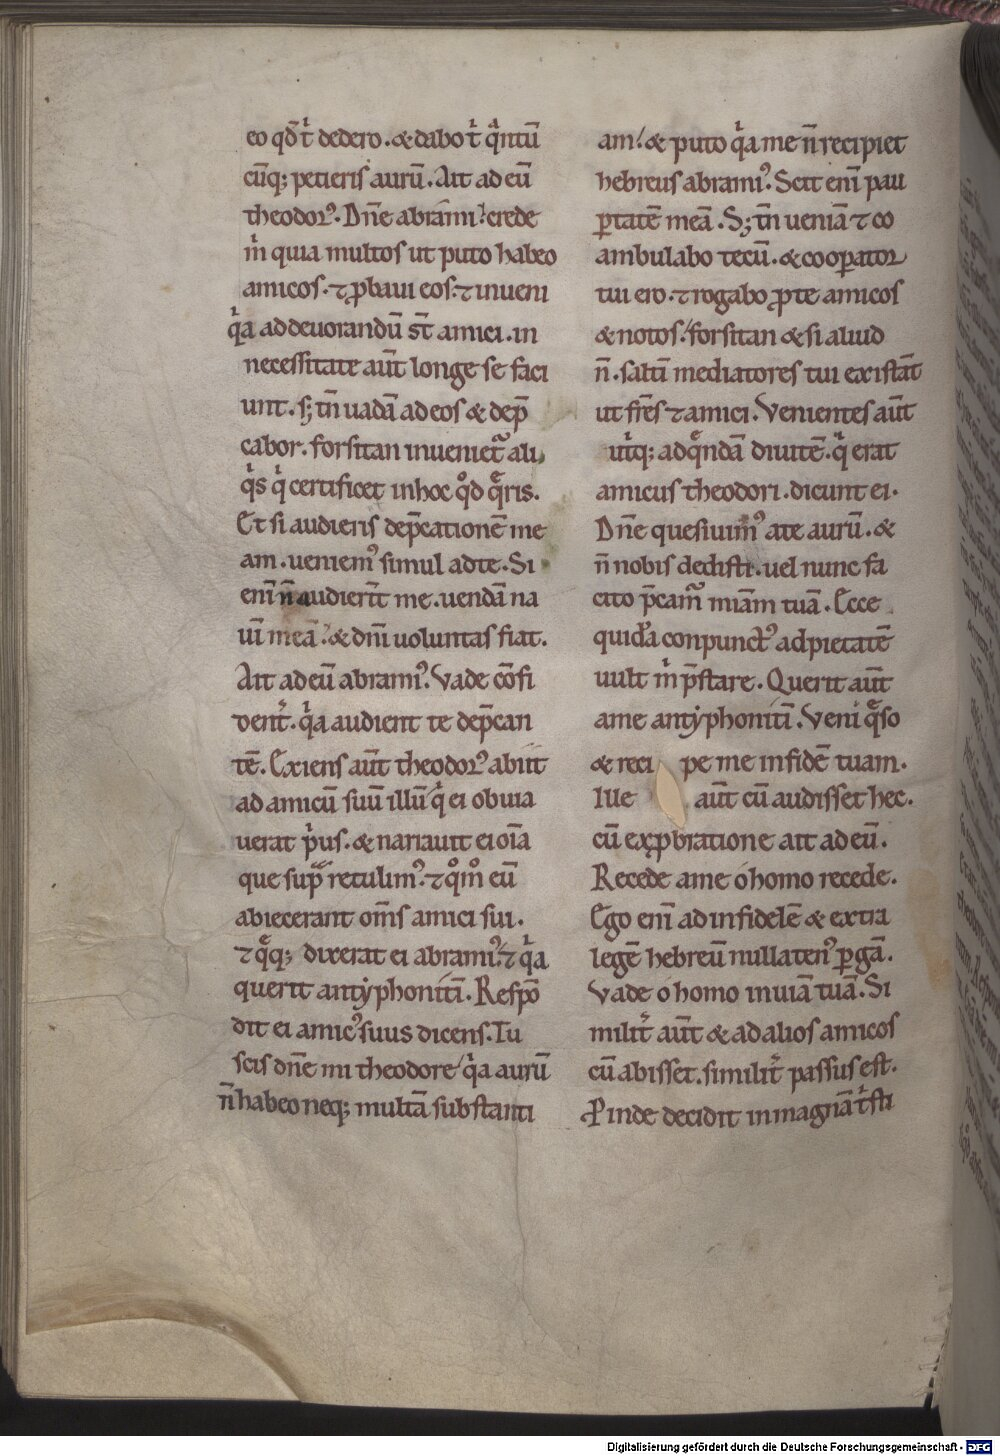 eo qđ t̄ dedero. & dabo t̄ qͣntū
cūq; petieris aurū. Ait ad eū
theodorꝰ. Dn̄e abrami! crede
m̄ quia multos ut puto habeo
amicos. ⁊ ꝓbaui eos. ⁊ inueni
qͥa ad deuorandū st̄ amici. in
necessitate aūt longe se faci
unt. s; tn̄ uadā ad eos & dep̄
cabor. forsitan inuenietᷣ ali
qͥs qͥ certificet in hoc qͦd qͣris.
Et si audieris dep̄cationē me
am. ueniemꝰ simul ad te. Si
enī n̄ audierīt me. uendā na
uī meā. & dn̄i uoluntas fiat.
Ait ad eū abramiꝰ. Vade cōfi
dentᷣ. qͥa audient te dep̄can
tē. Exiens aūt theodorꝰ abiit
ad amicū suū illū qͥ ei obuia
uerat pͥus. & narrauit ei oīa
que supͣ retulimꝰ. ⁊ qͦmͦ eū
abiecerant om̄s amici sui.
⁊ qͣq; dixerat ei abramiꝰ. ⁊ qͥa
querit antyphonitī. Respō
dit ei amicꝰ suus dicens. Tu
scis dn̄e mi theodore qͥa aurū
n̄ habeo neq; multā substanti
am! & puto qͥa me n̄ recipiet
hebreus abramiꝰ. Scit enī pau
ꝑtatē meā. S; tn̄ ueniā ⁊ co
ambulabo tecū. & cooꝑator
tui ero. ⁊ rogabo ꝓ te amicos
& notos. forsitan & si aliud
n̄. saltī mediatores tui existāt
ut fr̄es ⁊ amici. Venientes aūt
utͥq; ad qͣndā diuitē. qͥ erat
amicus theodori. dicunt ei.
Dn̄e quesiuimꝰ a te aurū. &
n̄ nobis dedisti. uel nunc fa
cito p̄camᷣ miām tuā. Ecce
quidā conpunctꝰ ad pietatē
uult m̄ p̄stare. Querit aūt
a me antyphonitī. Veni qͣso
& reci pe me in fidē tuam.
Ille aūt cū audisset hec.
cū exꝓbratione ait ad eū.
Recede a me o homo recede.
Ego enī ad infidelē & extra
legē hebreū nullatenꝰ ꝑgā.
Vade o homo in uiā tuā. Si
militᷣ aūt & ad alios amicos
cū abisset. similitᷣ passus est.
Proinde decidit in magnā tͥsti
Digitalisierung gefördert durch die Deutsche Forschungsgemeinschaft - DFG